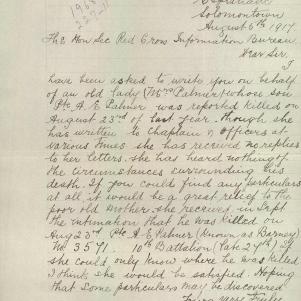 Esplanade
Solomontown
August 6th 1917.
The Hon Sec Red Cross Information Bureau,
Dear Sir,
I
have been asked to write you on behalf
of an old lady (Mrs Palmer) whose son
Pte A. E. Palmer was reported killed on
August 23rd of last year. Though she
has written to Chaplain & Officers at
various times she has received no replies
to her letters. She has heard nothing of
the circumstances surrounding his
death. If you could find any particulars
at all it would be a great relief to the
poor old mother. She received in Sept
the notification that he was killed on
Aug 23rd (Pte A. E. Palmer (Known as Barney)
No 3571. 10th Battalion (late 27th) If
she could only know where he was killed
I think she would be satisfied. Hoping
that some particulars may be discovered
Yours very truly